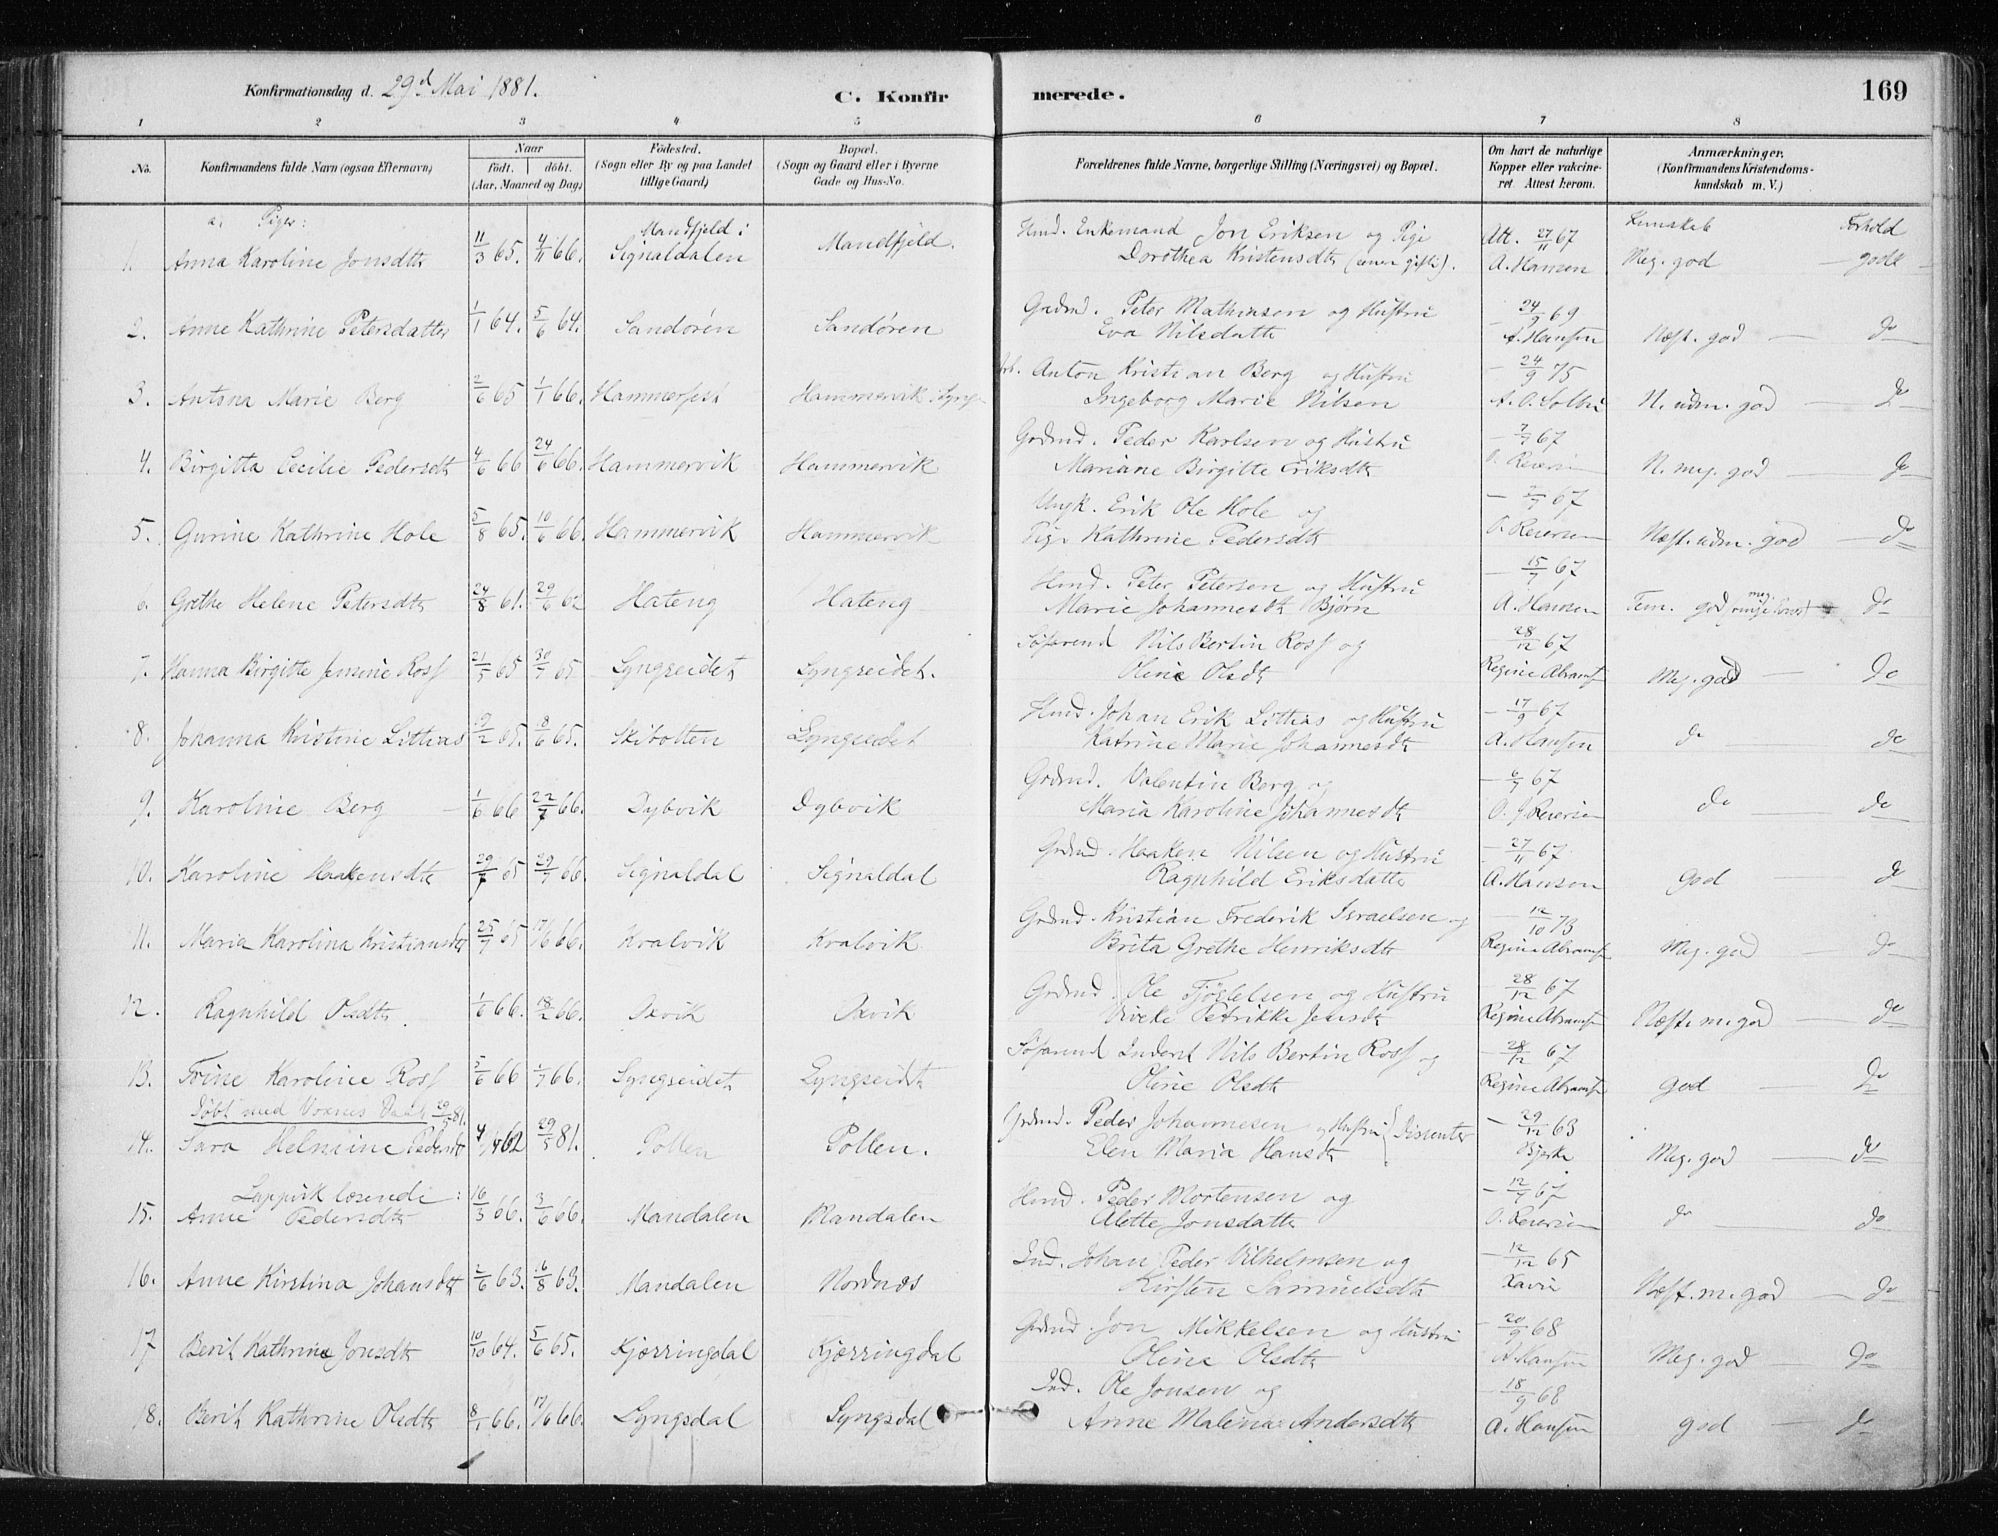 Konfirmationsdag d. 29d Mai 1881.
C. Konfirmerede.
169
1 2 3 4 5 6 7 8
No. Konfirmandens fulde Navn (ogsaa Efternavn) Naar födt. döbt. (Aar, Maaned og Dag) Födested. (Sogn eller By og paa Landet tillige Gaard) Bopæl. (Sogn og Gaard eller i Byerne Gade og Hus-No. Forældrenes fulde Navne, borgerlige Stilling (Næringsvei) og Bopæl. Om havt de naturlige Kopper eller vakcineret. Attest herom. Anmærkninger. (Konfirmandens Kristendomskundskab m. V.)
a. Piger: Kunskab Forhold
1. Anna Karoline Jonsdtr 11/3 65. 4/11 66. Mandfjeld i Signaldalen Mandfjeld. Hmd. Enkemand Jon Eriksen og Pige Dorothea Kristensdtr Att. 27/11 67 A. Hansen Meg. god godt
2. Anne Kathrine Petersdatter 1/1 64. 5/6 64. Sandören Sandören Grdmd. Peter Mathiasen og Hustru Eva Nilsdattr 24/9 69 A. Hansen Næst. god do
3. Antona Marie Berg 2/6 65 1/1 66. Hammerfest Hammervik i Lyngen Arb. Anton Kristian Berg og Hustru Ingeborg Marie Nilsen 24/9 75 N. udm. god do
4. Birgitta Cecilie Pedersdtr 4/6 66 24/6 66. Hammervik Hammervik Grdmd. Peder Karlsen og Hustru Mariane Birgitte Eriksdtr 7/7 67 O. Reiersen N. meg. god do
5. Gurine Kathrine Hole 5/8 65. 10/6 66. Hammervik Hammervik Ungk. Erik Ole Hole og Pige Kathrine Pedersdtr 7/7 67 O. Reiersen Næst. udm. god do
6. Grethe Helene Petersdtr 24/8 61. 29/6 62 Hateng Hateng Hmd. Peter Petersen og Hustru Marie Johannesdtr Bjørn 15/7 67 A. Hansen Tem. god do
7. Hanna Birgitte Jensine Ross 21/5 65 30/7 65 Lyngseidet Lyngseidet. Søfarend Nils Bertin Ross og Oline Olsdtr 28/12 67 Regine Abramsn Meg. god do
8. Johanna Kristine Littias 19/2 65. 8/6 65. Skibotten Lyngseidet Hmd. Johan Erik Littias og Hustru Katrine Marie Johannesdtr 17/9 67 A. Hansen do do
9. Karoline Berg 1/6 66 22/7 66. Dybvik Dybvik Grdmd. Valentin Berg og Maria Karoline Johannesdtr 6/7 67 O. J. Reiersen do do
10. Karoline Haakensdtr 29/7 65 29/7 66. Signaldal Signaldal Grdmd. Haaken Nilsen og Hustru Ragnhild Eriksdatter 27/11 67. A. Hanson God do
11. Maria Karolina Kristiansdtr 25/7 65 17/6 66. Kvalvik Kvalvik Grdmd. Kristian Frederik Israelsen og Brita Grethe Henriksdtr 12/10 73 Regine Abramsn Meg. god do
12. Ragnhild Olsdtr. 1/6 66. 18/2 66. Oxvik Oxvik Grdmd. Ole Fjøslelsen og Hustru Viveke Petrikke Jensdtr 28/12 67 Regine Abramsn Næst. m. god do
13. Trine Karoline Ross 5/6 66 1/7 66. Lyngseidet Lyngseidet Søfarend Inderst Nils Bertin Ross og Oline Olsdtr 28/12 67 Regine Abramsn god do
Døbt med Voxnes Daab 29/5 81.
14. Sara Helmine Pedersdtr 62 29/5 81. Pollen Pollen. Grdmd. Peder Johannesen og Hustru Elen Maria Hansdtr } Dissenter 29/12 63 Bjerke Meg. god do
Lappisk læsende:
15. Anne Pedersdtr 16/3 66. 3/6 66. Mandalen Mandalen Hmd. Peder Mortensen og Alette Jonsdattr 12/7 67 O. Reiersen do do
16. Anne Kirstina Johansdtr 2/6 63. 16/8 63. Mandalen Nordnæs Ind. Johan Peder Vilhelmsen og Kirsten Samuelsdtr 12/12 65 Næst. m. god do
17 Berit Kathrine Jonsdtr 10/10 64. 5/6 65. Kjærringdal Kjærringdal Grdmd. Jon Mikkelsen og Hustru Oline Olsdtr 20/9 68 A. Hansen Meg. god do
18. Berit Kathrine Olsdtr 8/1 66. 17/6 66. Lyngsdal Lyngsdal Ind. Ole Jonsen og Anne Malena Andersdtr 18/9 68 A. Hansen god do